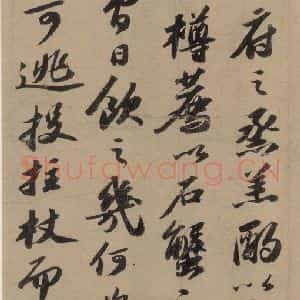 府之烝羔酌以
樽薦以石蟹
曾日飲之幾何
可逃投拄杖而
Shufawang.CN